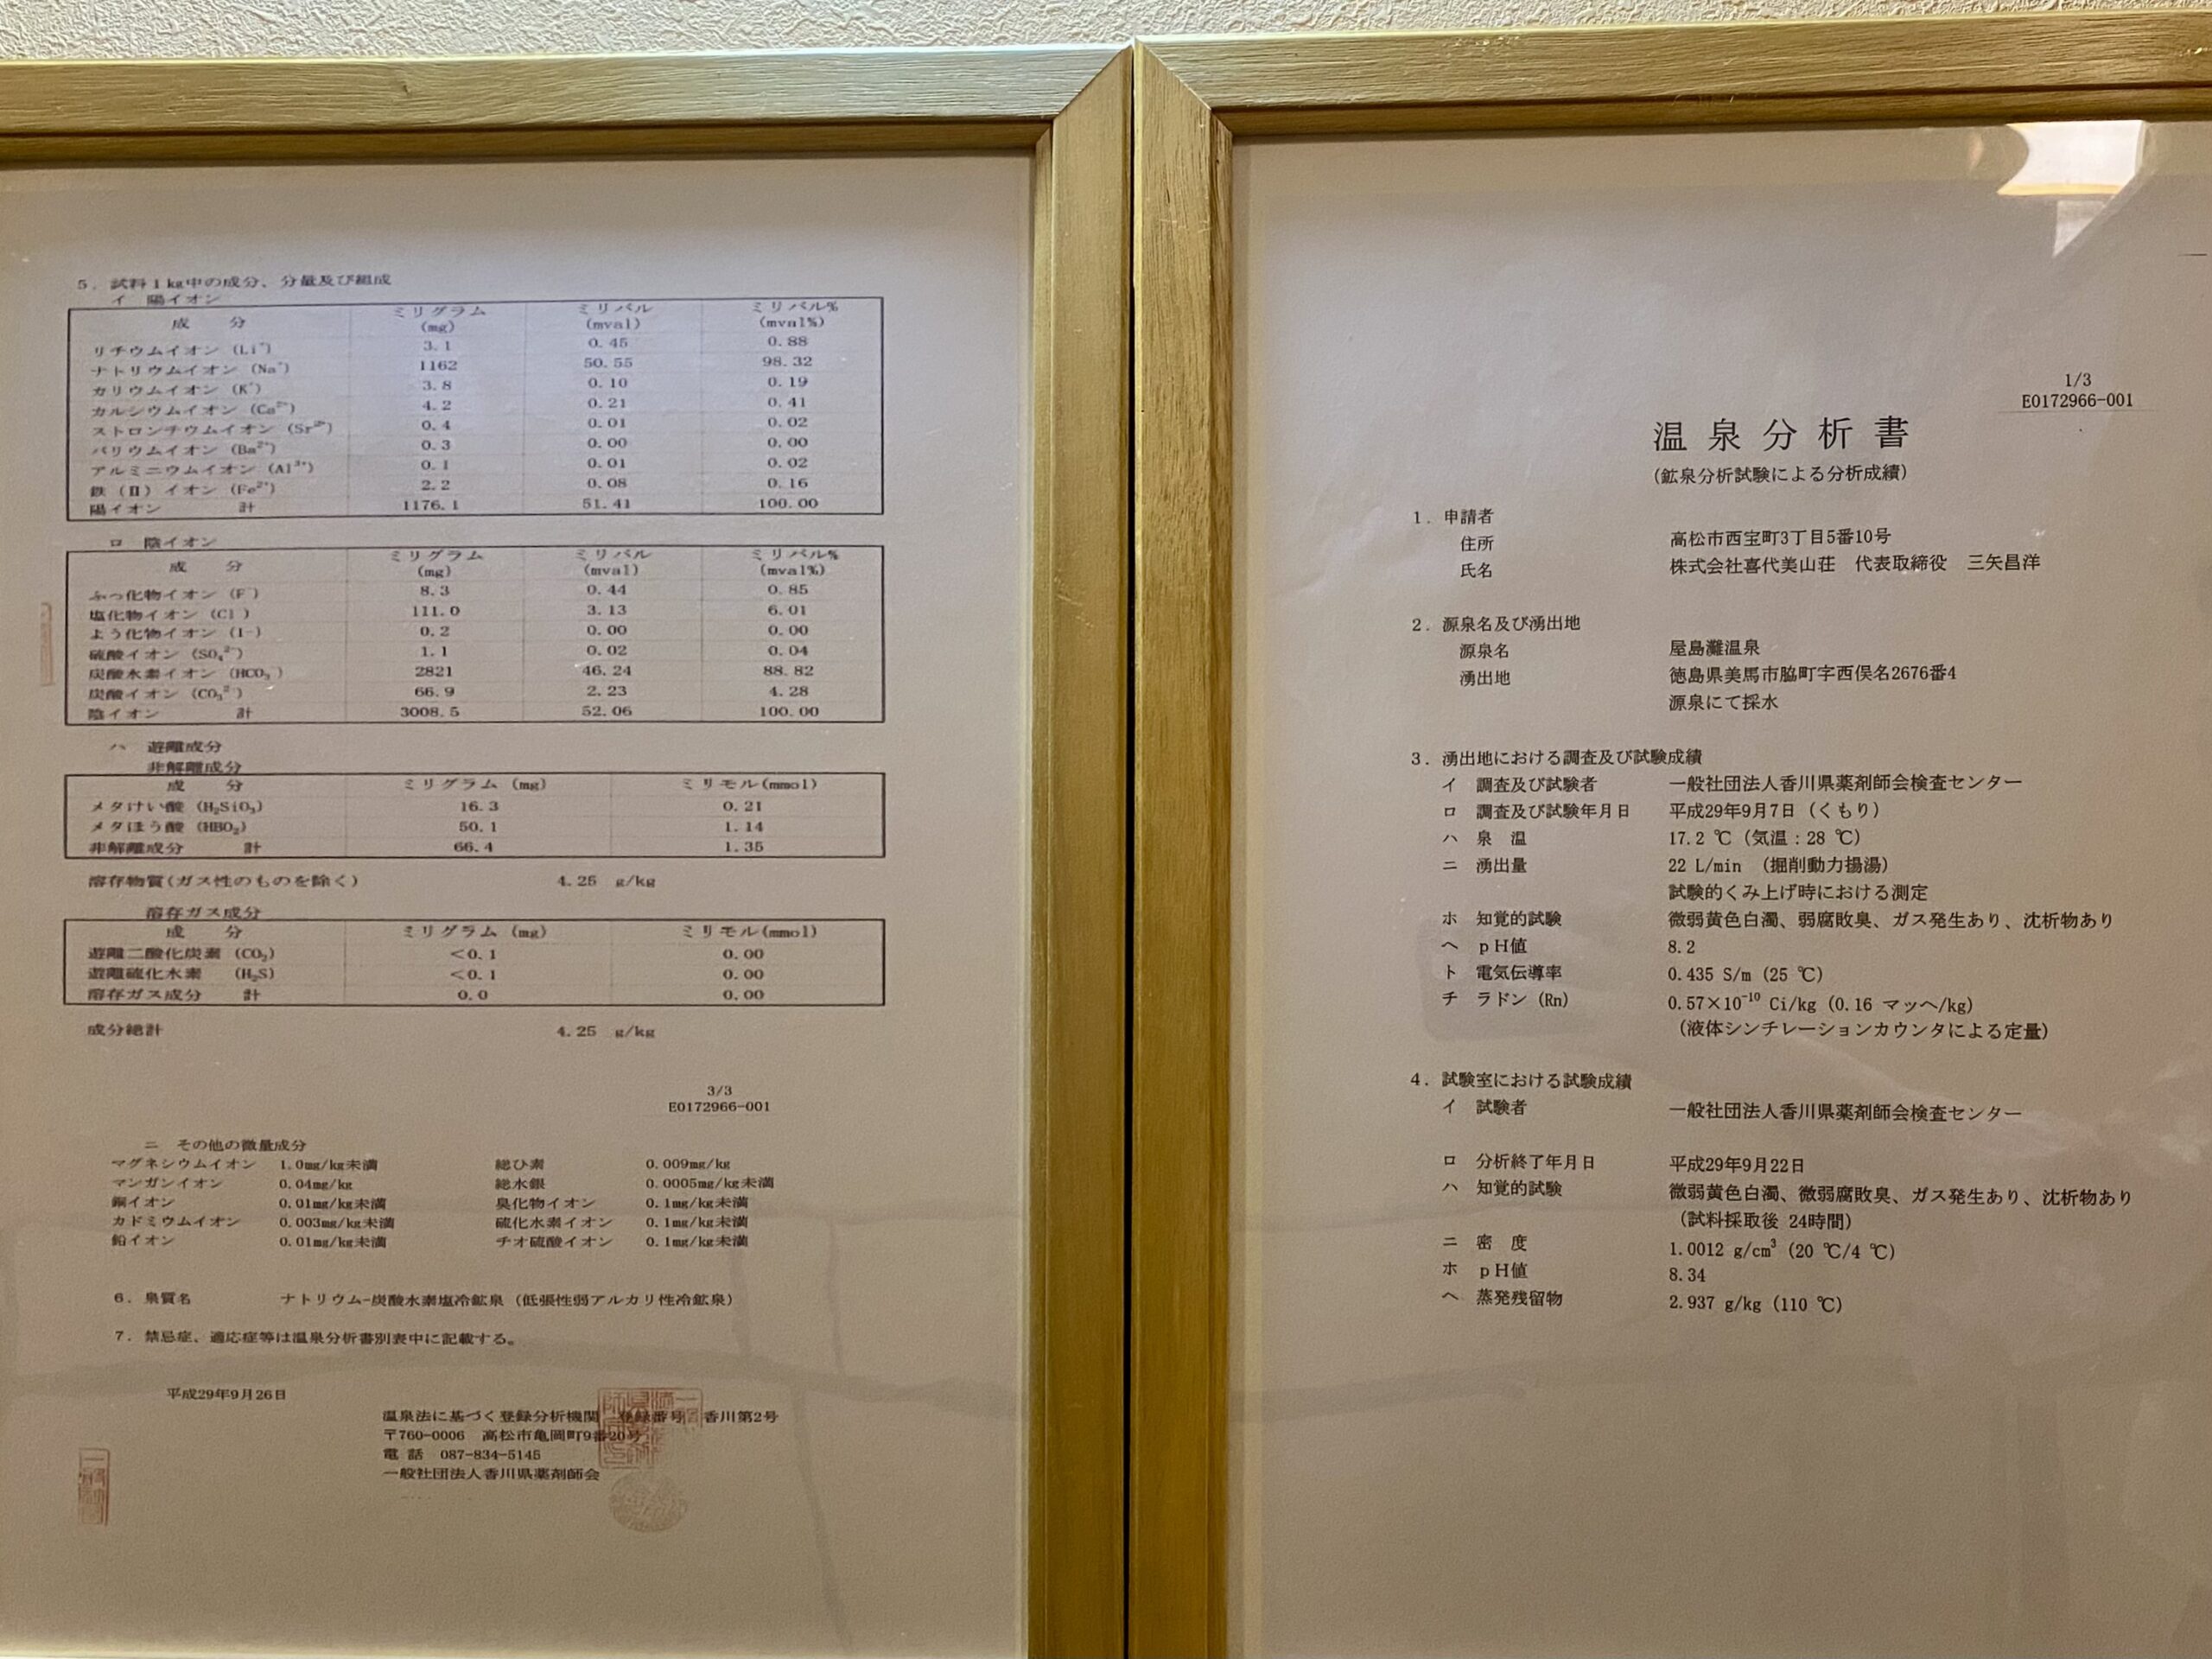 5. 試料1kg中の成分、分量及び組成
イ 陽イオン
成 分 ミリグラム (mg) ミリバル (mval) ミリバル% (mval%)
リチウムイオン (Li⁺) 3.1 0.45 0.88
ナトリウムイオン (Na⁺) 1162 50.55 98.32
カリウムイオン (K⁺) 3.8 0.10 0.19
カルシウムイオン (Ca²⁺) 4.2 0.21 0.41
ストロンチウムイオン (Sr²⁺) 0.4 0.01 0.02
バリウムイオン (Ba²⁺) 0.3 0.00 0.00
アルミニウムイオン (Al³⁺) 0.1 0.01 0.02
鉄 (Ⅱ) イオン (Fe²⁺) 2.2 0.08 0.16
陽イオン 計 1176.1 51.41 100.00
ロ 陰イオン
成 分 ミリグラム (mg) ミリバル (mval) ミリバル% (mval%)
ふっ化物イオン (F⁻) 8.3 0.44 0.85
塩化物イオン (Cl⁻) 111.0 3.13 6.01
よう化物イオン (I−) 0.2 0.00 0.00
硫酸イオン (SO₄²⁻) 1.1 0.02 0.04
炭酸水素イオン (HCO₃⁻) 2821 46.24 88.82
炭酸イオン (CO₃²⁻) 66.9 2.23 4.28
陰イオン 計 3008.5 52.06 100.00
ハ 遊離成分
非解離成分
成 分 ミリグラム (mg) ミリモル(mmol)
メタけい酸 (H₂SiO₃) 16.3 0.21
メタほう酸 (HBO₂) 50.1 1.14
非解離成分 計 66.4 1.35
溶存物質(ガス性のものを除く) 4.25 g/kg
溶存ガス成分
成 分 ミリグラム (mg) ミリモル(mmol)
遊離二酸化炭素 (CO₂) <0.1 0.00
遊離硫化水素 (H₂S) <0.1 0.00
溶存ガス成分 計 0.0 0.00
成分総計 4.25 g/kg
3/3
E0172966-001
ニ その他の微量成分
マグネシウムイオン 1.0mg/kg未満 総ひ素 0.009mg/kg
マンガンイオン 0.04mg/kg 総水銀 0.0005mg/kg未満
銅イオン 0.01mg/kg未満 臭化物イオン 0.1mg/kg未満
カドミウムイオン 0.003mg/kg未満 硫化水素イオン 0.1mg/kg未満
鉛イオン 0.01mg/kg未満 チオ硫酸イオン 0.1mg/kg未満
6. 泉質名 ナトリウム-炭酸水素塩冷鉱泉 (低張性弱アルカリ性冷鉱泉)
7. 禁忌症、適応症等は温泉分析書別表中に記載する。
平成29年9月26日
温泉法に基づく登録分析機関 登録番号 香川第2号
〒760-0006 高松市亀岡町9番20号
電話 087-834-5145
一般社団法人香川県薬剤師会
1/3
E0172966-001
温泉分析書
(鉱泉分析試験による分析成績)
1. 申請者
住所 高松市西宝町3丁目5番10号
氏名 株式会社喜代美山荘 代表取締役 三矢昌洋
2. 源泉名及び湧出地
源泉名 屋島灘温泉
湧出地 徳島県美馬市脇町字西俣名2676番4
源泉にて採水
3. 湧出地における調査及び試験成績
イ 調査及び試験者 一般社団法人香川県薬剤師会検査センター
ロ 調査及び試験年月日 平成29年9月7日 (くもり)
ハ 泉 温 17.2 ℃ (気温:28 ℃)
ニ 湧出量 22 L/min (掘削動力揚湯)
試験的くみ上げ時における測定
ホ 知覚的試験 微弱黄色白濁、弱腐敗臭、ガス発生あり、沈析物あり
ヘ pH値 8.2
ト 電気伝導率 0.435 S/m (25 ℃)
チ ラドン (Rn) 0.57×10⁻¹⁰ Ci/kg (0.16 マッヘ/kg)
(液体シンチレーションカウンタによる定量)
4. 試験室における試験成績
イ 試験者 一般社団法人香川県薬剤師会検査センター
ロ 分析終了年月日 平成29年9月22日
ハ 知覚的試験 微弱黄色白濁、微弱腐敗臭、ガス発生あり、沈析物あり
(試料採取後 24時間)
ニ 密 度 1.0012 g/cm³ (20 ℃/4 ℃)
ホ pH値 8.34
ヘ 蒸発残留物 2.937 g/kg (110 ℃)